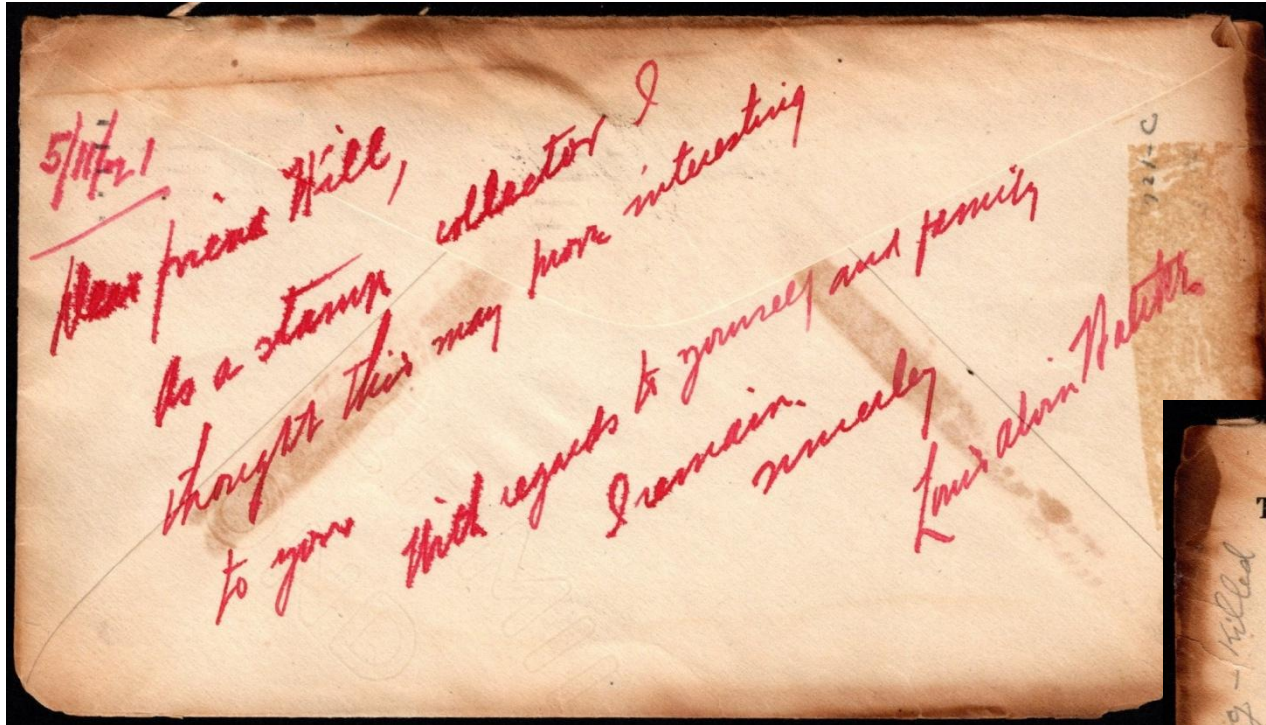 5/11/21
Dear friend Will,
As a stamp collector I
thought this may prove interesting
to you With regards to yourself and family
I remain.
sincerely
Louis Alvin
721-C
T
- Killed